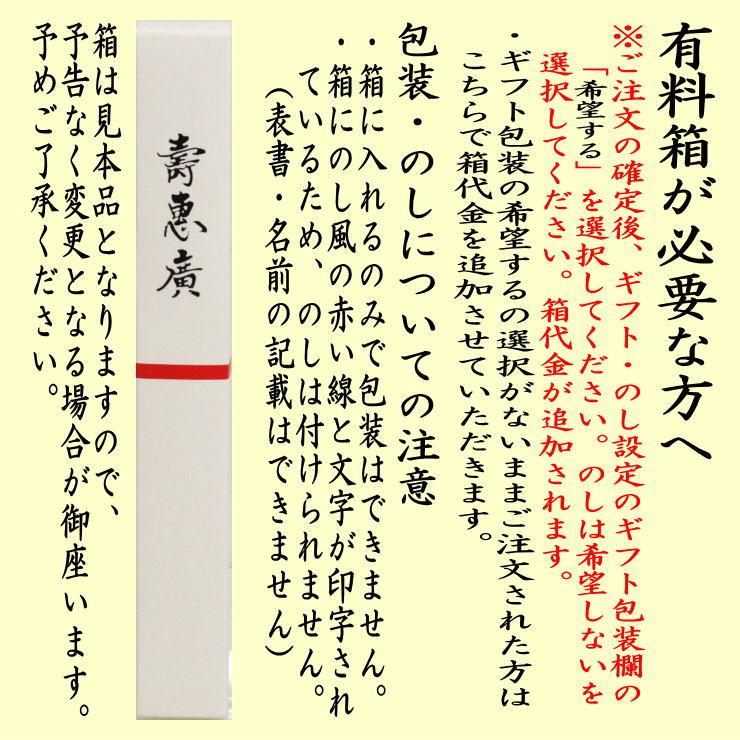 有料箱が必要な方へ
※ご注文の確定後、ギフト・のし設定のギフト包装欄の
「希望する」を選択してください。のしは希望しないを
選択してください。箱代金が追加されます。
・ギフト包装の希望するの選択がないままご注文された方は
こちらで箱代金を追加させていただきます。
包装・のしについての注意
・箱に入れるのみで包装はできません。
・箱にのし風の赤い線と文字が印字され
ているため、のしは付けられません。
（表書・名前の記載はできません）
壽恵廣
箱は見本品となりますので、
予告なく変更となる場合が御座います。
予めご了承ください。